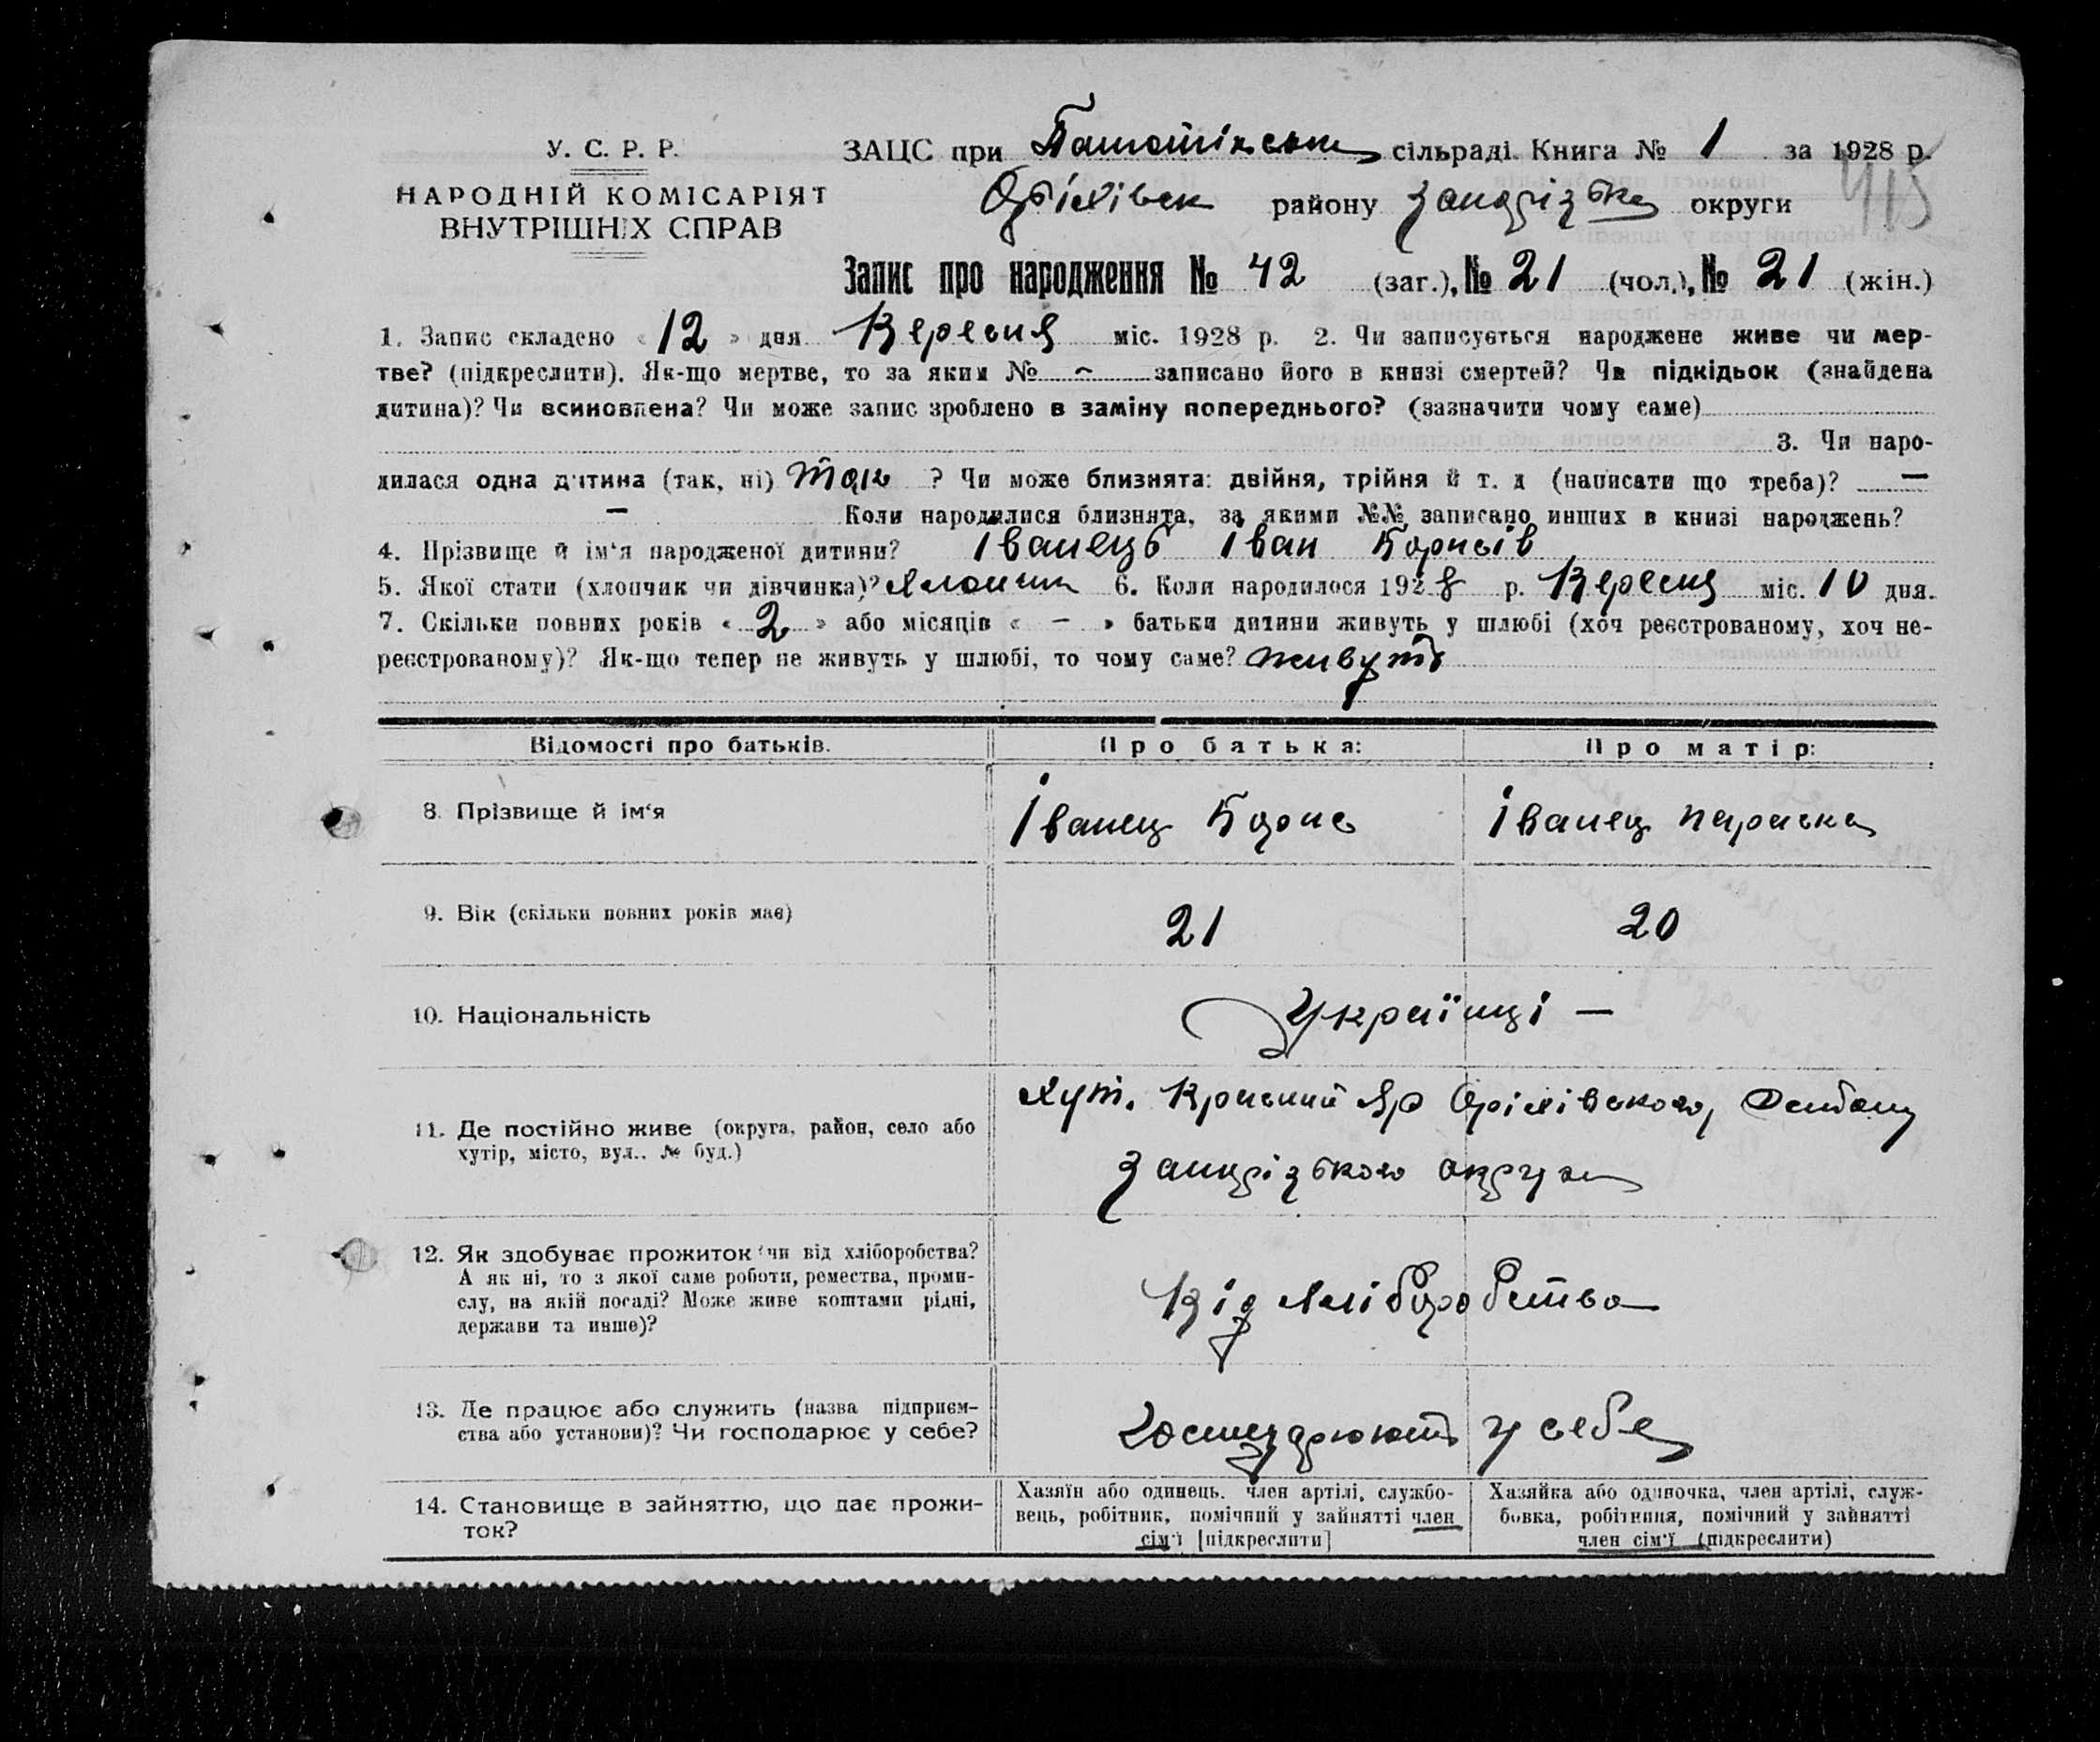 У. С. Р. Р.
НАРОДНІЙ КОМІСАРІЯТ
ВНУТРІШНІХ СПРАВ
ЗАЦС при сільраді. Книга № 1 за 1928 р.
Оріхівськ району Запорізька округи
415
Запис про народження № 42 (заг.), № 21 (чол.), № 21 (жін.)
1. Запис складено « 12 » дня Вересня міс. 1928 р. 2. Чи записується народжене живе чи мер-
тве? (підкреслити). Як-що мертве, то за яким № ~ записано його в книзі смертей? Чи підкідьок (знайдена
дитина)? Чи всиновлена? Чи може запис зроблено в заміну попереднього? (зазначити чому саме)
3. Чи наро-
дилася одна дитина (так, ні) Так ? Чи може близнята: двійня, трійня й т. д (написати що треба)? —
— Коли народилися близнята, за якими №№ записано инших в книзі народжень?
4. Прізвище й ім‘я народженої дитини? Іванець Іван Борисів
5. Якої стати (хлопчик чи дівчинка)? Хлопчик 6. Коли народилося 1928 р. Вересня міс. 10 дня.
7. Скільки повних років « 2 » або місяців « — » батьки дитини живуть у шлюбі (хоч реєстрованому, хоч не-
реєстрованому)? Як-що тепер не живуть у шлюбі, то чому саме? живуть
Відомості про батьків.
Про батька:
Про матір:
8. Прізвище й ім‘я
Іванец Борис
Іванец Параска
9. Вік (скільки повних років має)
21
20
10. Національність
Українці —
11. Де постійно живе (округа, район, село або
хутір, місто, вул.. № буд.)
Хут. Красний Яр Оріхівського
Запорізького округи
12. Як здобуває прожиток чи від хліборобства?
А як ні, то з якої саме роботи, ремества, проми-
слу, на якій посаді? Може живе коштами рідні,
держави та инше)?
Від хліборобства
13. Де працює або служить (назва підприєм-
ства або установи)? Чи господарює у себе?
Господарюють у себе
14. Становище в зайняттю, що дає прожи-
ток?
Хазяїн або одинець. член артілі, службо-
вець, робітник, помічний у зайнятті член
сім‘ї [підкреслити]
Хазяйка або одиночка, член артілі, служ-
бовка, робітниця, помічний у зайнятті
член сім‘ї (підкреслити)